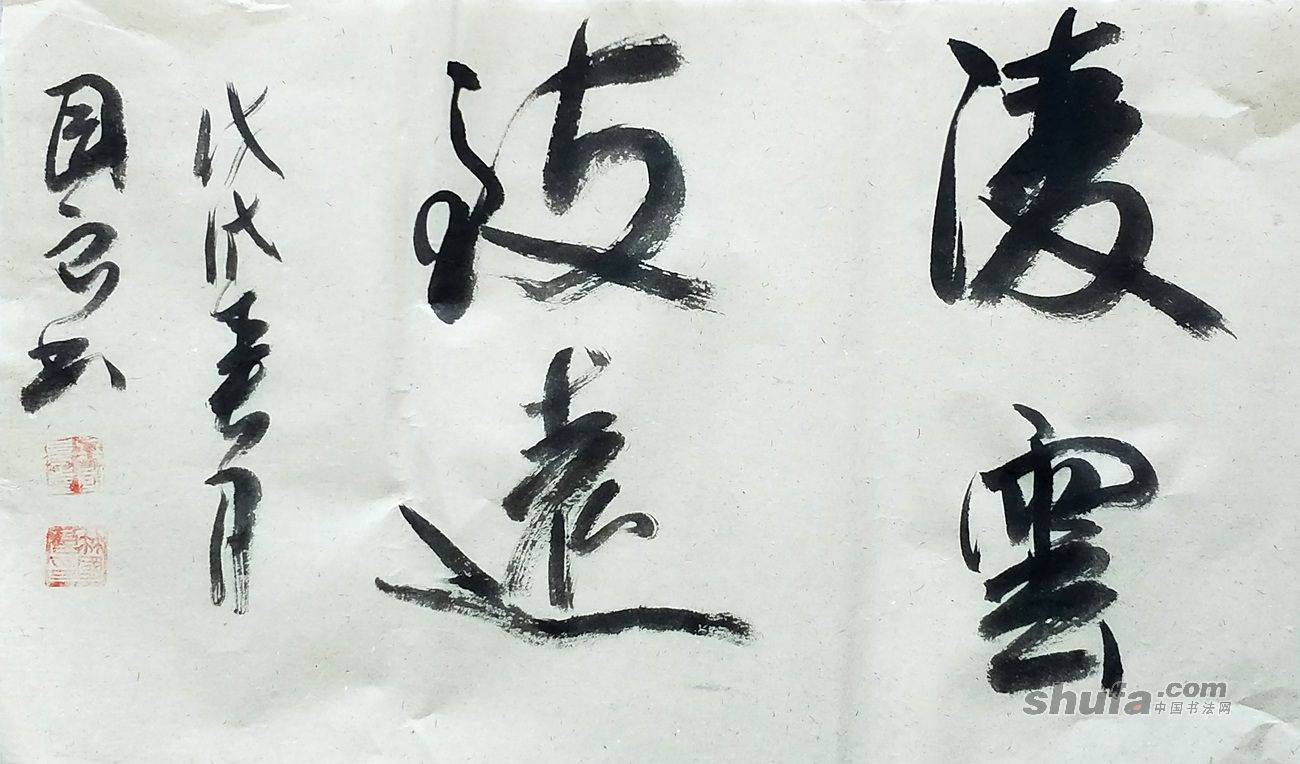 凌雲
致遠
戊戌春月
国良书
shufa.com
中国书法网